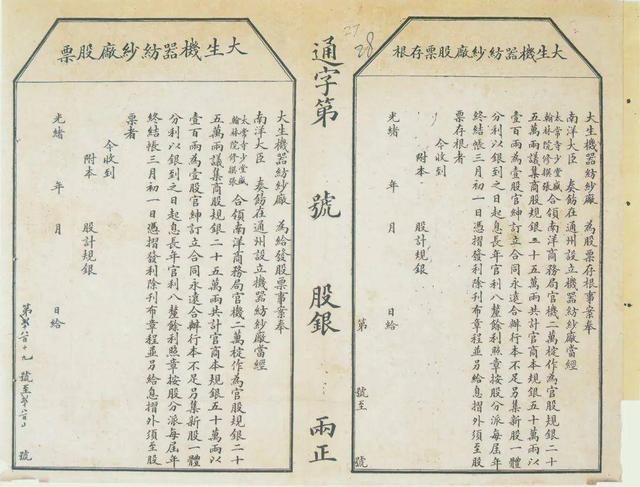 大生機器紡紗廠股票存根
大生機器紡紗廠 為股票存根事案奉
南洋大臣 奏飭在通州設立機器紡紗廠當經
太常寺少堂盛
翰林院修撰張
合領南洋商務局官機二萬椗作為官股規銀二十
五萬兩議集商股規銀二十五萬兩共計官商本規銀五十萬兩以
壹百兩為壹股官紳訂立合同永遠合辦行本不足另集新股一體
分利以銀到之日起息長年官利八釐餘利照章按股分派每屆年
終結帳三月初一日憑摺發利除刊布章程並另給息摺外須至股
票存根者
今收到
附本 股計規銀
光緒 年 月 日給
第 號至 號
27
28
通字第 號 股銀 兩正
大生機器紡紗廠股票
大生機器紡紗廠 為給發股票事案奉
南洋大臣 奏飭在通州設立機器紡紗廠當經
太常寺少堂盛
翰林院修撰張
合領南洋商務局官機二萬椗作為官股規銀二十
五萬兩議集商股規銀二十五萬兩共計官商本規銀五十萬兩以
壹百兩為壹股官紳訂立合同永遠合辦行本不足另集新股一體
分利以銀到之日起息長年官利八釐餘利照章按股分派每屆年
終結帳三月初一日憑摺發利除刊布章程並另給息摺外須至股
票者
今收到
附本 股計規銀
光緒 年 月 日給
第 號至 號